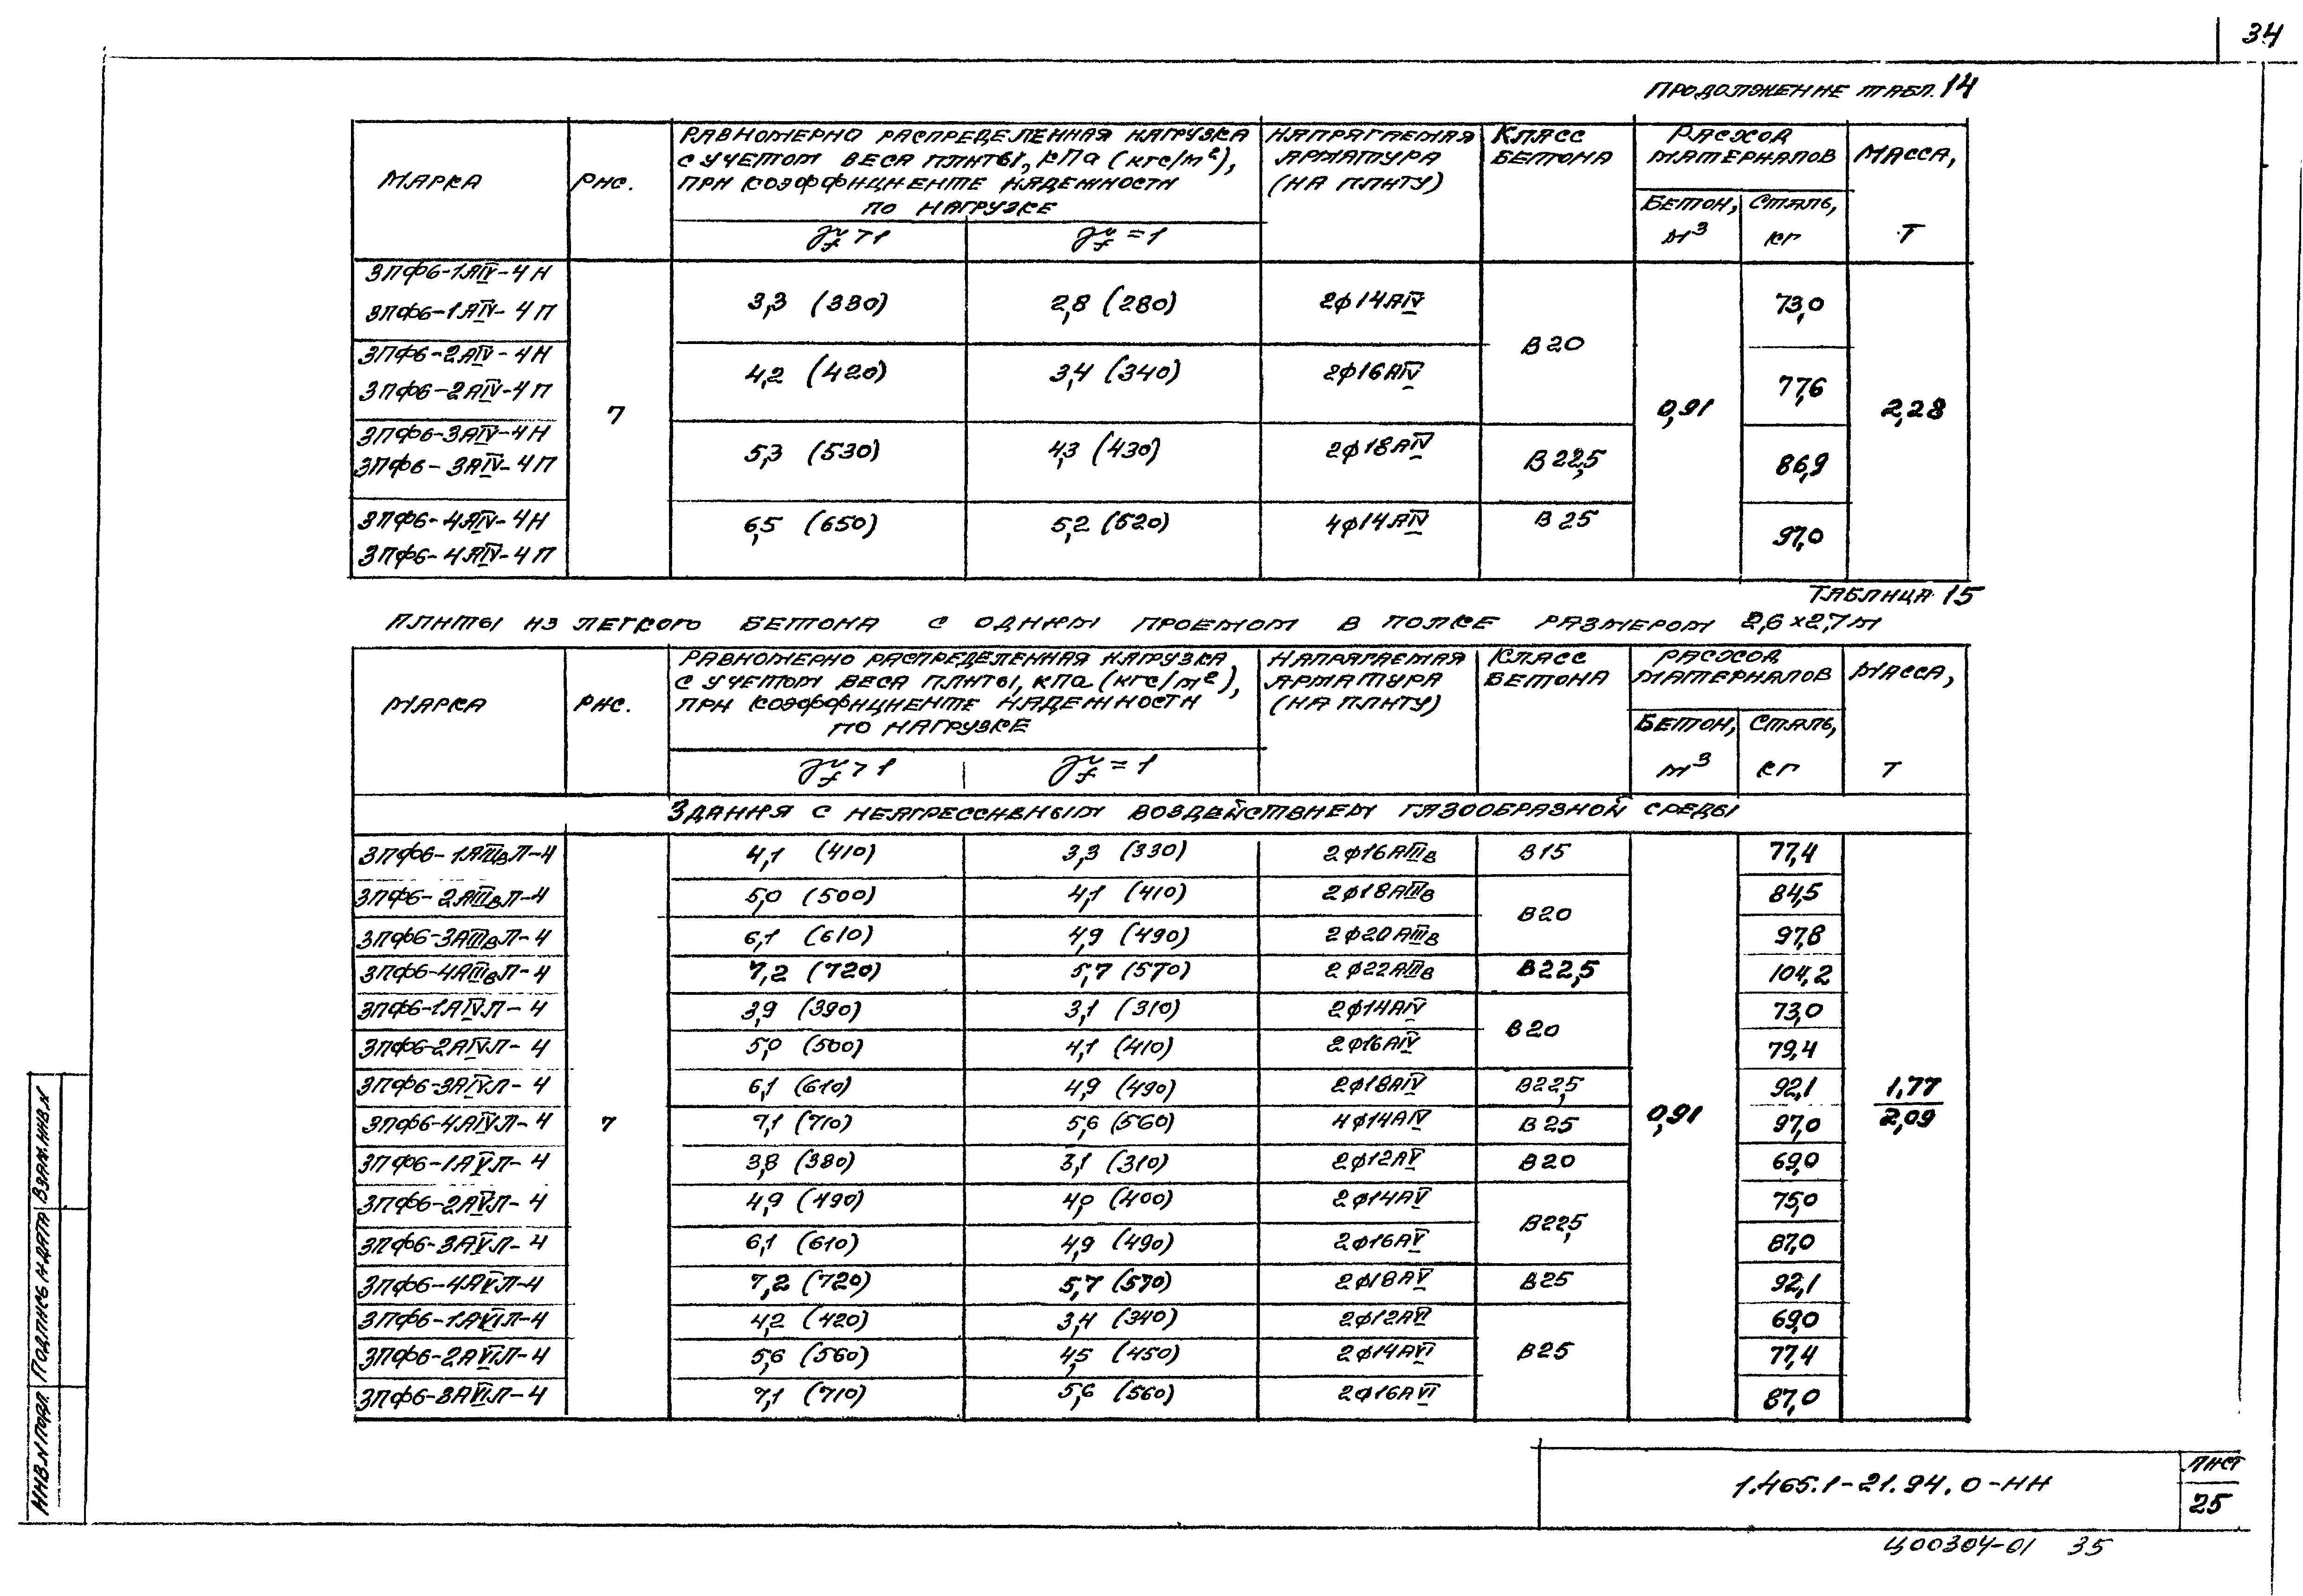 34
Продолжение табл. 14
Марка
Рис.
Равномерно распределенная нагрузка
с учетом веса плиты, кПа (кгс/м²),
при коэффициенте надежности
по нагрузке
γf > 1
γf = 1
Напрягаемая
арматура
(на плиту)
Класс
бетона
Расход
материалов
Бетон,
м³
Сталь,
кг
Масса,
т
3ПФ6-1АIV-4Н
3ПФ6-1АIV-4П
7
3,3 (330)
2,8 (280)
2φ14АIV
В20
0,91
73,0
2,28
3ПФ6-2АIV-4Н
3ПФ6-2АIV-4П
4,2 (420)
3,4 (340)
2φ16АIV
77,6
3ПФ6-3АIV-4Н
3ПФ6-3АIV-4П
5,3 (530)
4,3 (430)
2φ18АIV
В22,5
86,9
3ПФ6-4АIV-4Н
3ПФ6-4АIV-4П
6,5 (650)
5,2 (520)
4φ14АIV
В25
97,0
Таблица 15
Плиты из легкого бетона с одним проемом в полке размером 2,6×2,7м
Марка
Рис.
Равномерно распределенная нагрузка
с учетом веса плиты, кПа (кгс/м²),
при коэффициенте надежности
по нагрузке
γf > 1
γf = 1
Напрягаемая
арматура
(на плиту)
Класс
бетона
Расход
материалов
Бетон,
м³
Сталь,
кг
Масса,
т
Здания с неагрессивным воздействием газообразной среды
3ПФ6-1АIIIвЛ-4 4,1 (410) 3,3 (330) 2φ16АIIIв В15 77,4
3ПФ6-2АIIIвЛ-4 5,0 (500) 4,1 (410) 2φ18АIIIв В20 84,5
3ПФ6-3АIIIвЛ-4 6,1 (610) 4,9 (490) 2φ20АIIIв 97,8
3ПФ6-4АIIIвЛ-4 7,2 (720) 5,7 (570) 2φ22АIIIв В22,5 104,2
3ПФ6-1АIVЛ-4 3,9 (390) 3,1 (310) 2φ14АIV В20 73,0
3ПФ6-2АIVЛ-4 5,0 (500) 4,1 (410) 2φ16АIV 79,4
3ПФ6-3АIVЛ-4 6,1 (610) 4,9 (490) 2φ18АIV В22,5 92,1
3ПФ6-4АIVЛ-4 7 7,1 (710) 5,6 (560) 4φ14АIV В25 0,91 97,0 1,77/2,09
3ПФ6-1АVЛ-4 3,8 (380) 3,1 (310) 2φ12АV В20 69,0
3ПФ6-2АVЛ-4 4,9 (490) 4,0 (400) 2φ14АV В22,5 75,0
3ПФ6-3АVЛ-4 6,1 (610) 4,9 (490) 2φ16АV 87,0
3ПФ6-4АVЛ-4 7,2 (720) 5,7 (570) 2φ18АV В25 92,1
3ПФ6-1АVIЛ-4 4,2 (420) 3,4 (340) 2φ12АVI В25 69,0
3ПФ6-2АVIЛ-4 5,6 (560) 4,5 (450) 2φ14АVI 77,4
3ПФ6-3АVIЛ-4 7,1 (710) 5,6 (560) 2φ16АVI 87,0
Инв.N подл.
Подпись и дата
Взам.инв.N
1.465.1-21.94.0-НИ
Лист
25
Ц00304-01 35